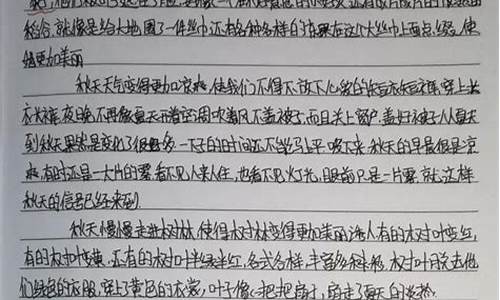 稻谷，就像是给大地围了一件丝巾还有各种各样的瓜果在这个大丝巾上面点缀，使
她更加美丽
秋天天气变得更加凉爽，使我们不得不放下心爱的短衣短裤，穿上长
衣长裤，夜晚不再像夏天开着空调吹着风不盖被子，而且关上窗户，盖好被子，从夏天
到秋天果然是变化了很多，一下子的时间还不能马上平缓下来，秋天的早晨很是凉
爽，有时还是一大片的雾，看不见人来人往，也看不见灯光，眼前只是一片雾，就这样
秋天的信号已经来到
秋天慢慢走进树林，使得树林变得更加美丽诱人有的树叶变红，
有的树叶变黄，还有的树叶半绿半红，各式各样，丰富多彩，树叶脱去他
们绿色的衣服，穿上了黄色的衣裳，叶子像一把把扇子，扇走了夏天的炎热